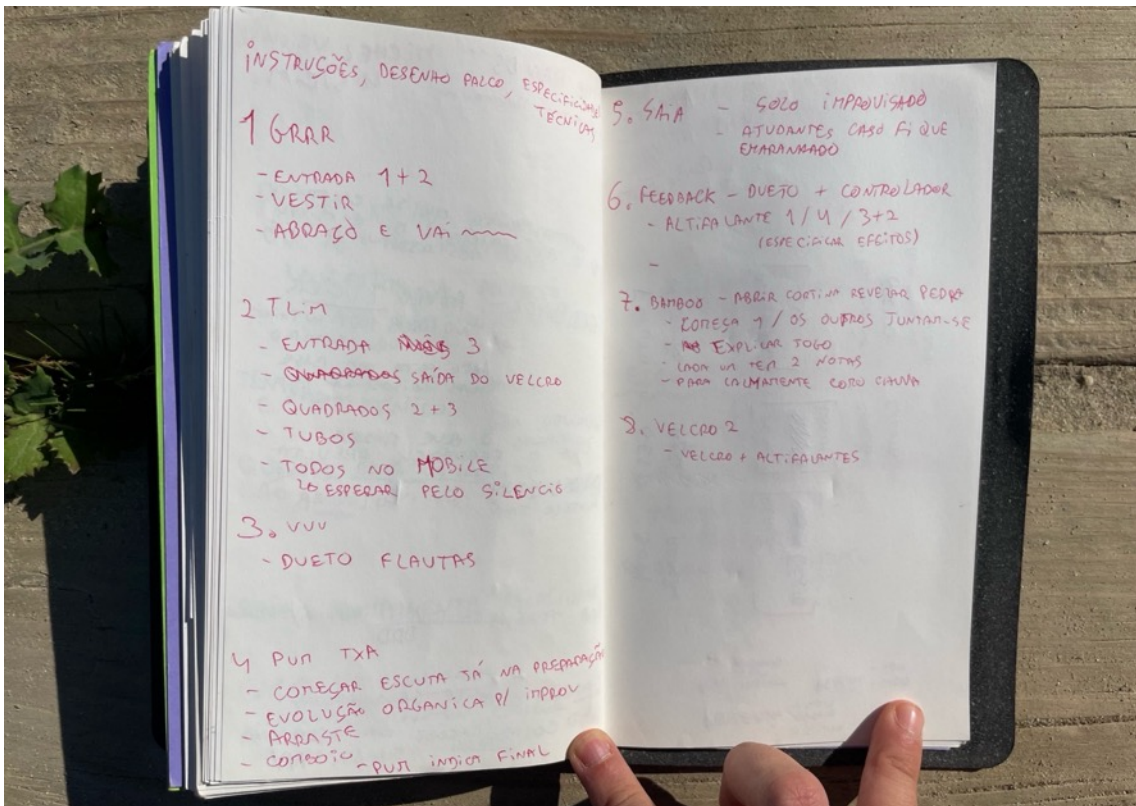 INSTRUÇÕES, DESENHO PALCO, ESPECIFICIDADES
TÉCNICAS
1 GRRR
- ENTRADA 1+2
- VESTIR
- ABRAÇO E VAI
2 TLIM
- ENTRADA 3
- SAÍDA DO VELCRO
- QUADRADOS 2+3
- TUBOS
- TODOS NO MOBILE
ESPERAR PELO SILENCIO
3. VUU
- DUETO FLAUTAS
4 PUM TXA
- COMEÇAR ESCUTA JÁ NA PREPARAÇÃO
- EVOLUÇÃO ORGANICA P/ IMPROV
- ARRASTE
- COMBOIO - PUM INDICA FINAL
5. SAIA - SOLO IMPROVISADO
- AJUDANTES CASO FIQUE
EMARANHADO
6. FEEDBACK - DUETO + CONTROLADOR
- ALTIFALANTE 1/4/3+2
(ESPECIFICAR EFEITOS)
-
7. BAMBOO - ABRIR CORTINA REVELAR PEDRA
- COMEÇA 1 / OS OUTROS JUNTAM-SE
- EXPLICAR JOGO
- CADA UM TEM 2 NOTAS
- PARA CALMAMENTE COMO CHUVA
8. VELCRO 2
- VELCRO + ALTIFALANTES